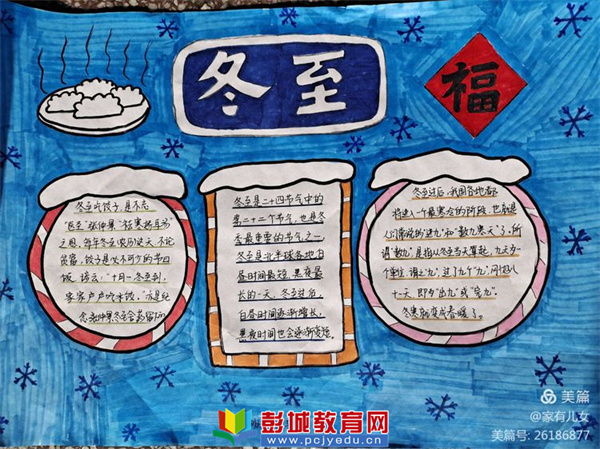 冬至
福
冬至吃饺子，是不忘
"医圣"张仲景"祛寒娇耳汤"
之恩，每年冬至农历这天，不论
贫富，饺子是必不可少的节日
饭，谚云："十月一，冬至到，
家家户户吃水饺，"亦是纪
念张仲景冬至舍药留下的
冬至是二十四节气中的
第二十二个节气，也是冬
季最重要的节气之一
冬至是北半球各地白
昼时间最短，黑夜最
长的一天，冬至过后，
白昼时间逐渐增长，
黑夜时间也会逐渐变短。
冬至过后，我国各地都
将进入一个最寒冷的阶段，也就是
人们常说的"进九"和"数九寒天"了，所
谓"数九"是指从冬至当天算起，九天为一
个单位，谓之"九"，过了九个"九"，刚好八
十一天，即为"出九"或"完九"，
冬寒就变成春暖了。
美篇
@家有儿女
美篇号: 26186877
彭城教育网
www.pcjyedu.cn